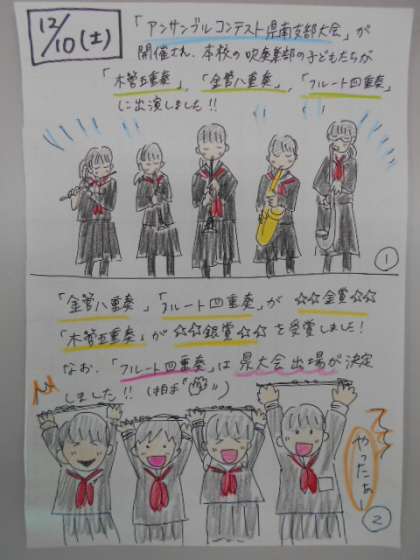 12/10(土)
「アンサンブルコンテスト県南支部大会」が
開催され、本校の吹奏楽部の子どもたちが
「木管五重奏」、「金管八重奏」、「フルート四重奏」
に出演しました!!
①
「金管八重奏」「フルート四重奏」が ☆☆金賞☆☆
「木管五重奏」が ☆☆銀賞☆☆ を受賞しました!
なお、「フルート四重奏」は 県大会出場が決定
しました!! (拍手
やったあー
②